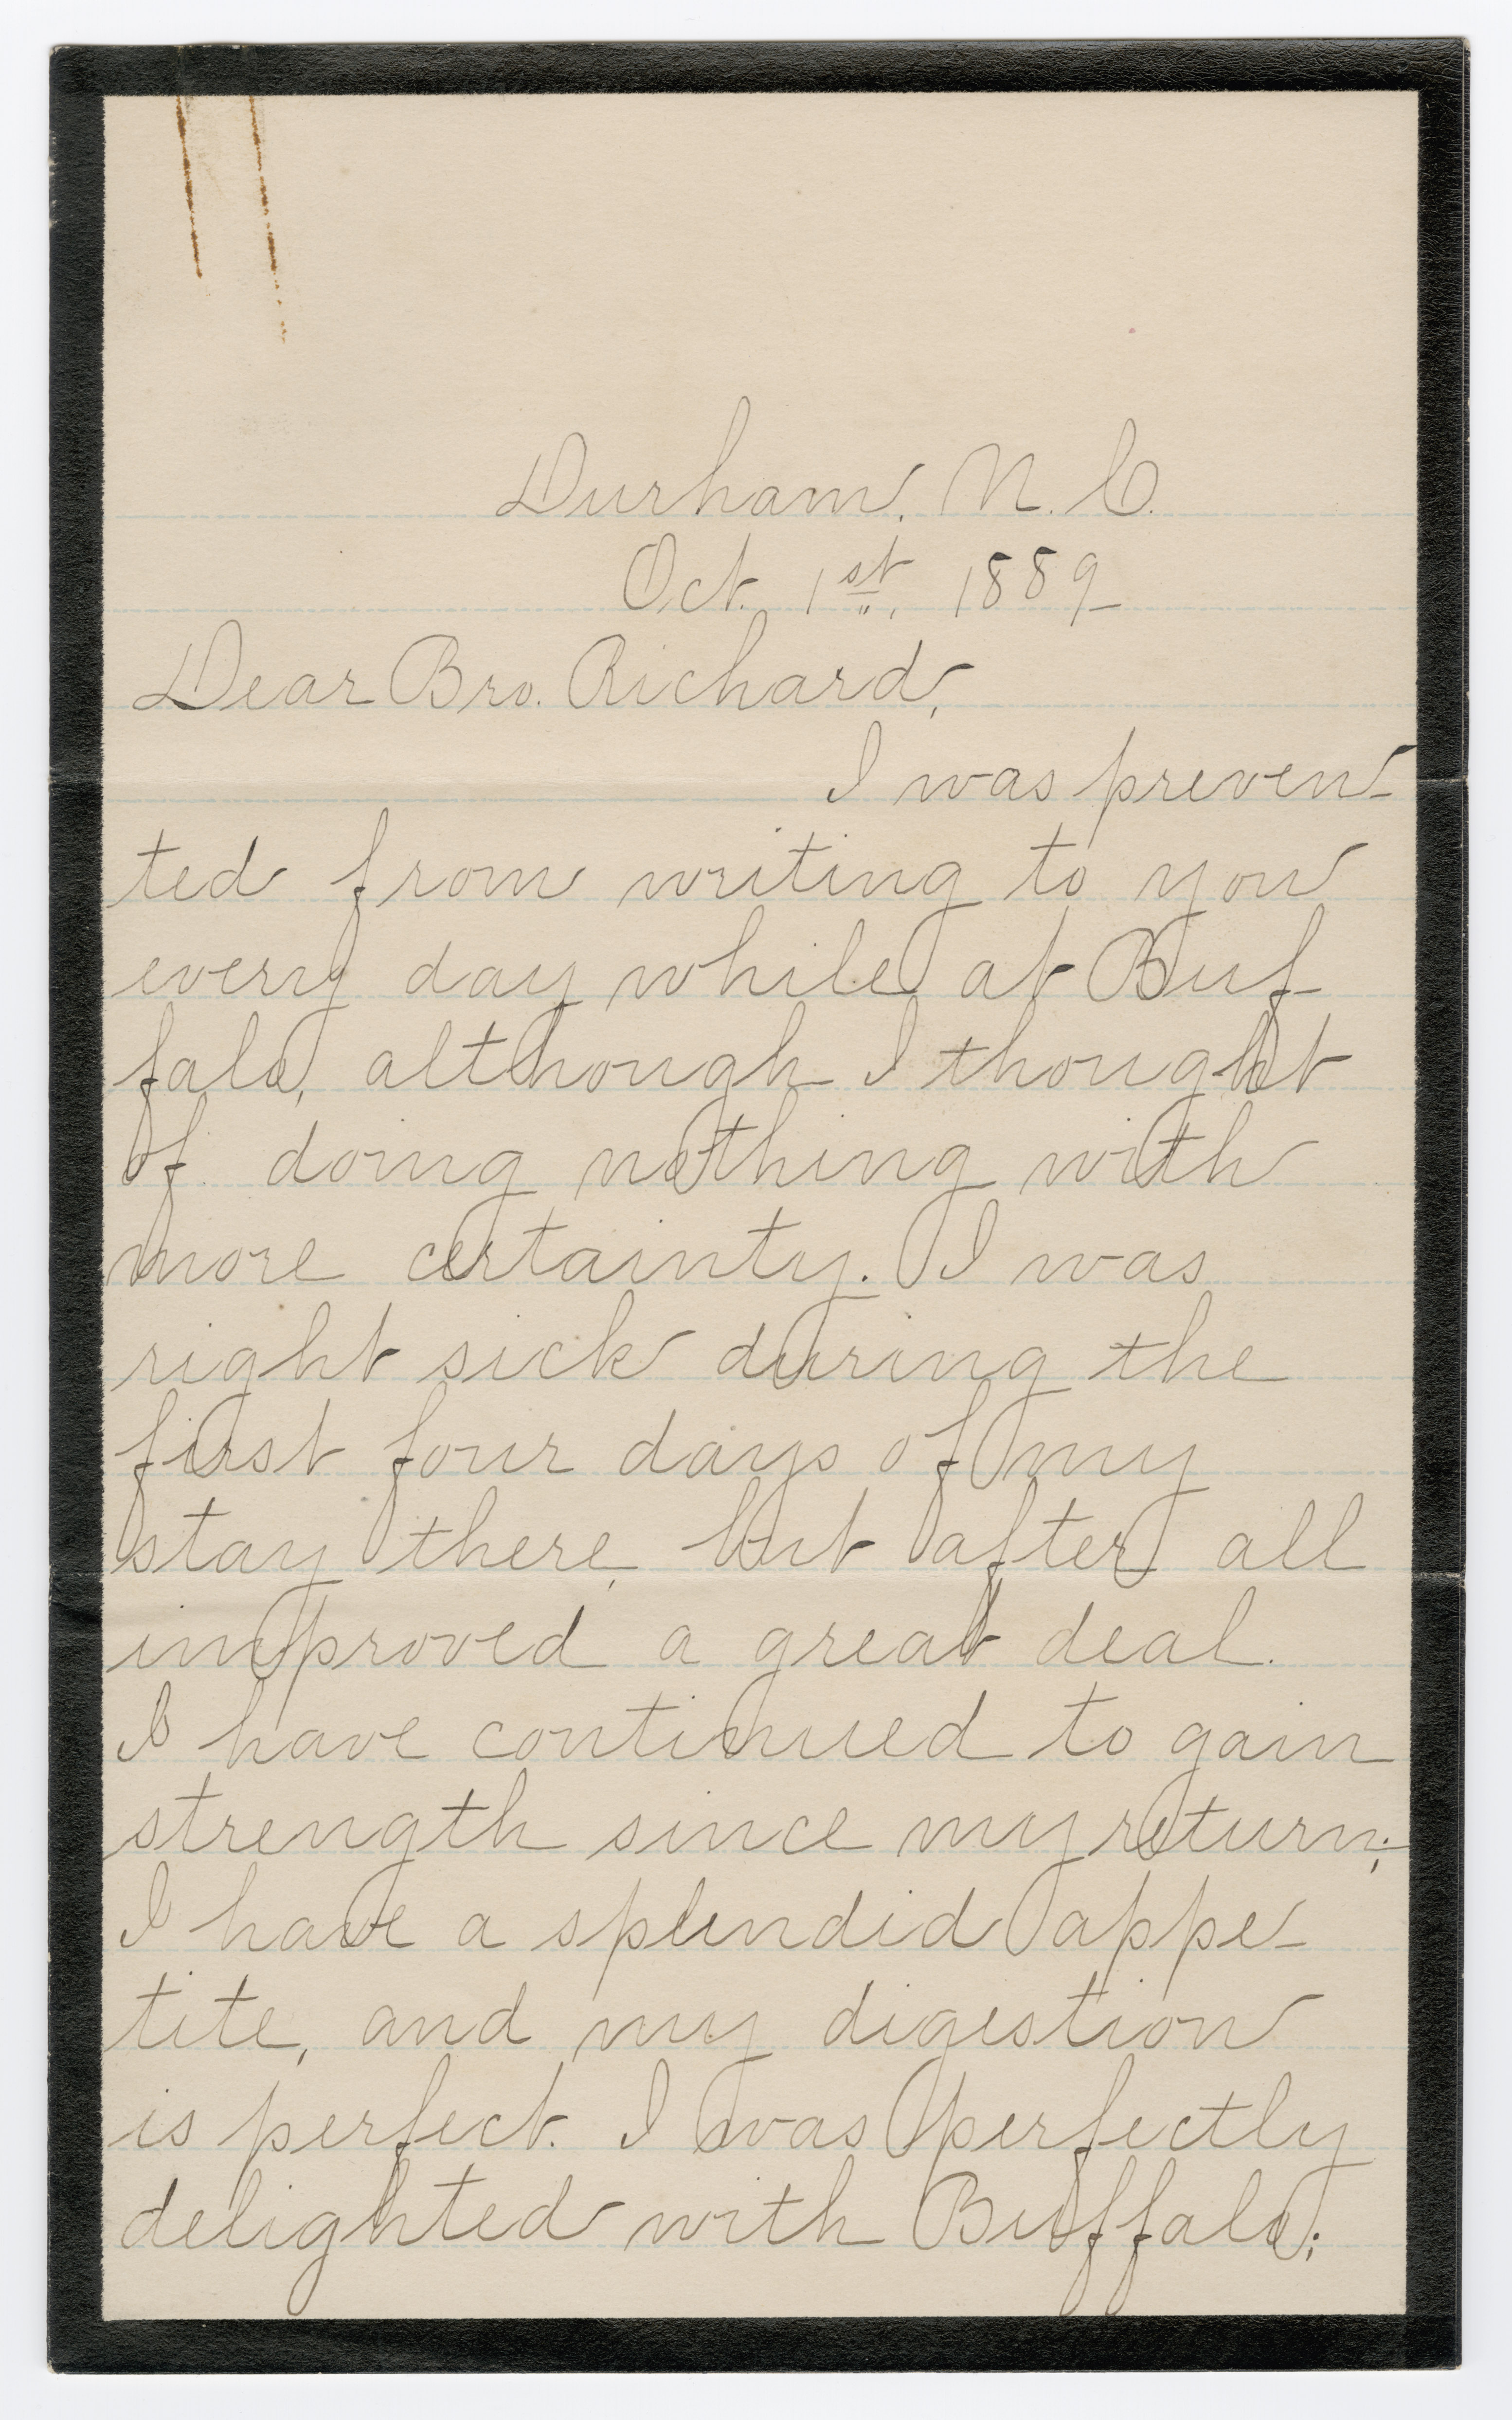 Durham, N. C.
Oct. 1st, 1889
Dear Bro. Richard,
I was preven-
ted from writing to you
every day while at Buf-
falo, although I thought
of doing nothing with
more certainty. I was
right sick during the
first four days of my
stay there, but after all
improved a great deal.
I have continued to gain
strength since my return;
I have a splendid appe-
tite, and my digestion
is perfect. I was perfectly
delighted with Buffalo;